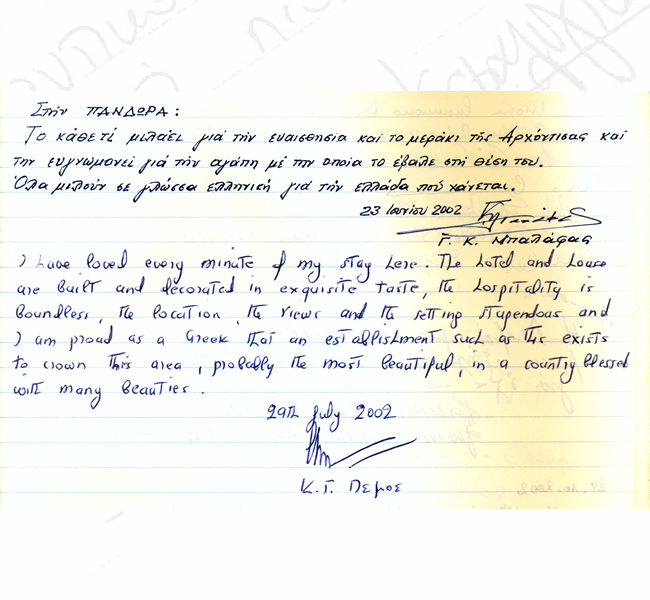 Στήν ΠΑΝΔΩΡΑ:
Το κάθε τί μιλάει γιά τήν ευαισθησία και το μεράκι τής Αρχόντισας και
την ευγνωμονεί γιά τήν αγάπη μέ την οποία το έβαλε στή θέση του.
Όλα μιλούν σε γλώσσα ελληνική γιά τήν ελλάδα πού χάνεται.
23 Ιουνίου 2002
Γ. Κ. Μπαλάφας
I have loved every minute of my stay here. The hotel and house
are built and decorated in exquisite taste, the hospitality is
boundless, the location, the views and the setting stupendous and
I am proud as a Greek that an establishment such as this exists
to crown this area, probably the most beautiful, in a country blessed
with many beauties.
29th July 2002
Κ.Γ.